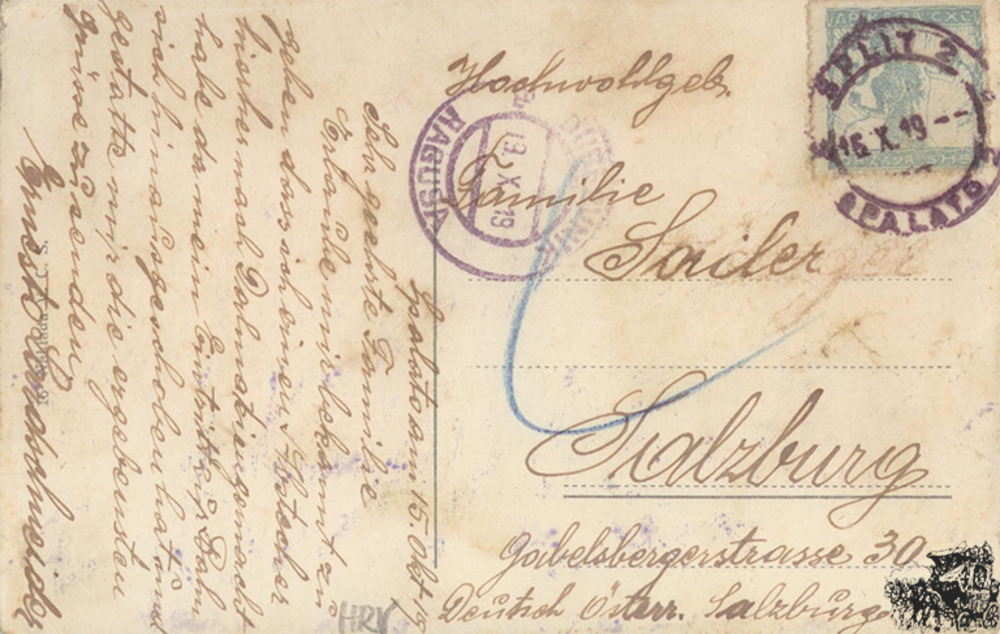 Spalato am 15. Okt 19
Sehr geehrte Familie
Erlaube mir bekannt zu
geben dass ich einen Abstecher
hieher nach Dalmatien gemacht
habe da mein Eintritt Bahn
sich hinausgeschoben hat und
gestatte mir die ergebensten
Grüsse zu senden
Ernst
Hochwohlgeb.
Familie
Sailer
Salzburg
Gabelsbergerstrasse 30
Deutsch Österr. Salzburg
SPLIT 2
15. X. 19
SPALATO 2
RAGUSA
X. 19
HRV
16